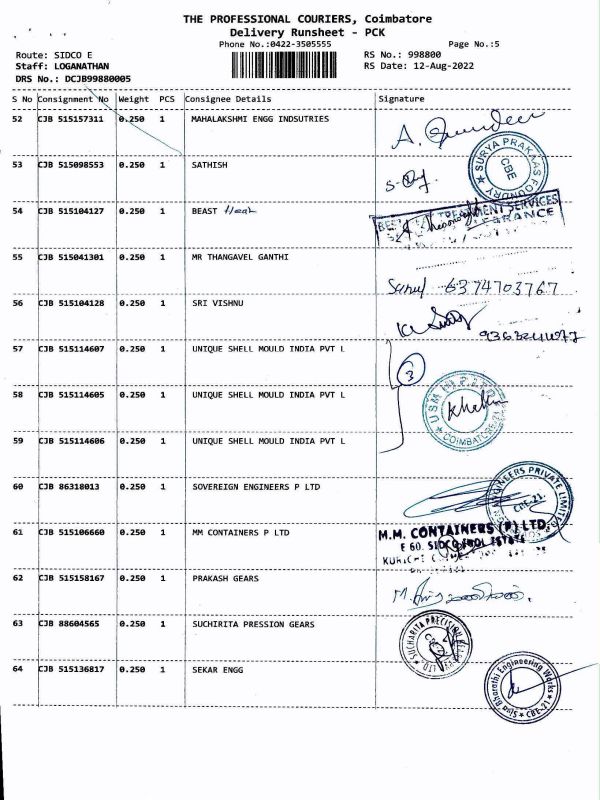 THE PROFESSIONAL COURIERS, Coimbatore
Delivery Runsheet - PCK
Phone No.:0422-3505555
Page No.:5
Route: SIDCO E
RS No.: 998800
Staff: LOGANATHAN
RS Date: 12-Aug-2022
DRS No.: DCJB99880005
S No Consignment No Weight PCS Consignee Details Signature
52 CJB 515157311 0.250 1 MAHALAKSHMI ENGG INDSUTRIES
53 CJB 515098553 0.250 1 SATHISH
SURYA PRAKAAS FOUNDRY
CBE
54 CJB 515104127 0.250 1 BEAST Heat
55 CJB 515041301 0.250 1 MR THANGAVEL GANTHI
6374703767
56 CJB 515104128 0.250 1 SRI VISHNU
57 CJB 515114607 0.250 1 UNIQUE SHELL MOULD INDIA PVT L
3
58 CJB 515114605 0.250 1 UNIQUE SHELL MOULD INDIA PVT L
COIMBATORE-21
59 CJB 515114606 0.250 1 UNIQUE SHELL MOULD INDIA PVT L
60 CJB 86318013 0.250 1 SOVEREIGN ENGINEERS P LTD
ENGINEERS PRIVATE LIMITED
CBE-21
61 CJB 515106660 0.250 1 MM CONTAINERS P LTD
M.M. CONTAINERS (P) LTD.
62 CJB 515158167 0.250 1 PRAKASH GEARS
63 CJB 88604565 0.250 1 SUCHIRITA PRESSION GEARS
SUCHARITA PRECISION
64 CJB 515136817 0.250 1 SEKAR ENGG
Sree Bharathi Engineering Works
CBE-21